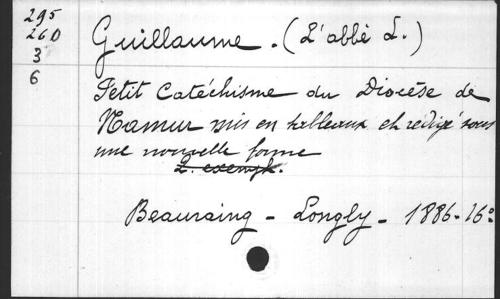 295
260
3
6
Guillaume. (L'abbé L.)
Petit Catéchisme du Diocèse de
Namur mis en tableaux et redigé sous
une nouvelle forme
2. exempl.
Beauraing - Longly - 1886-16º